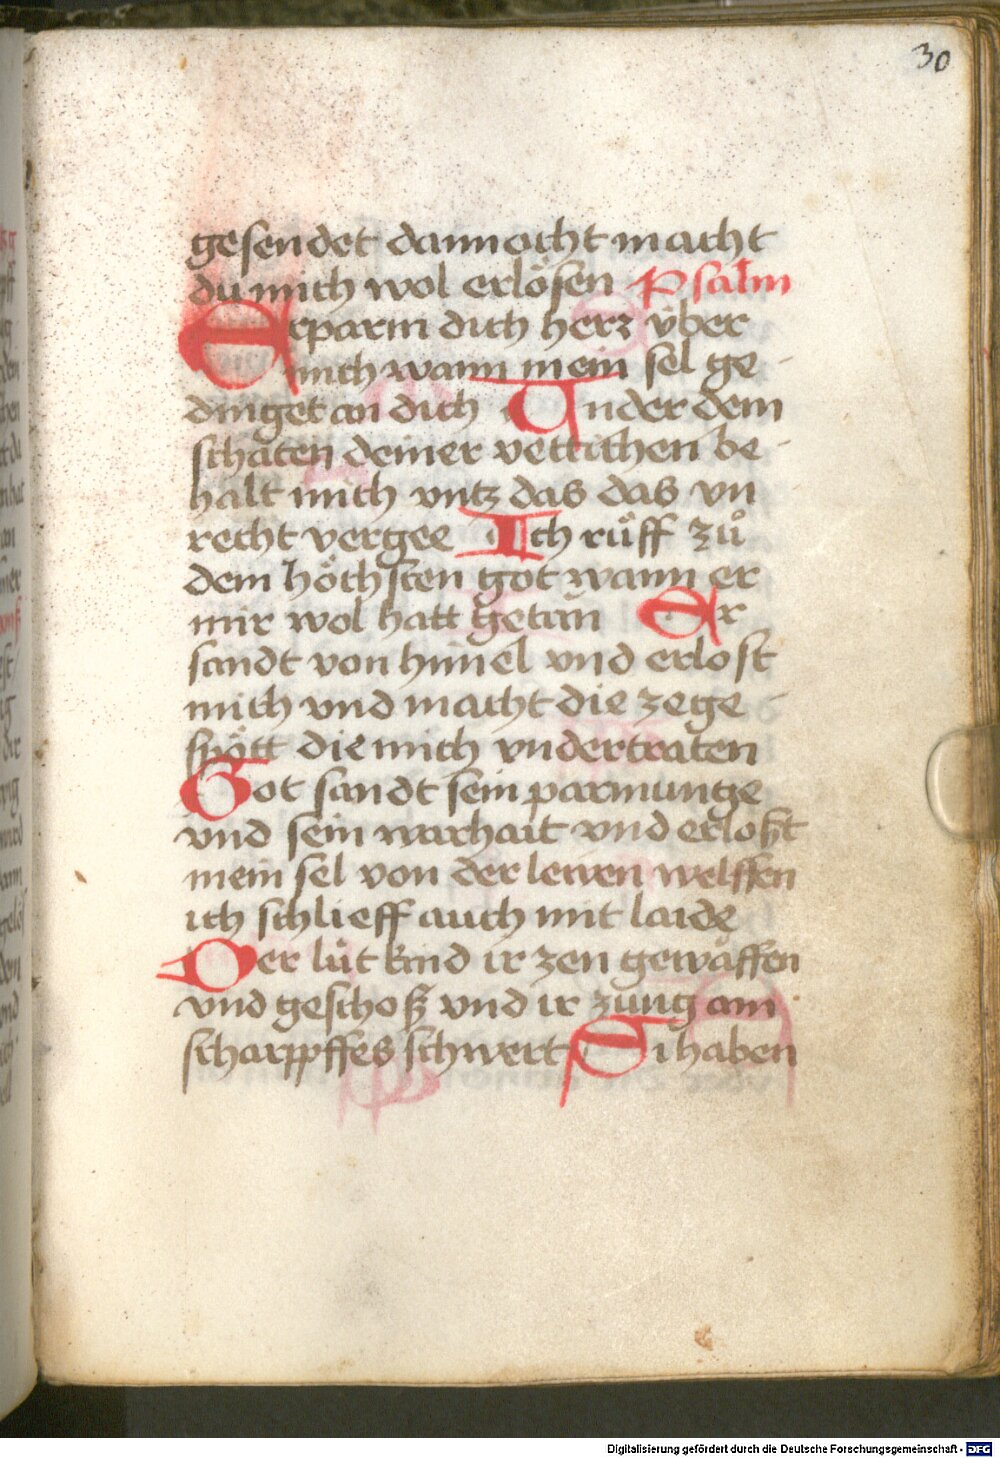 30
gesendet dannocht macht
du mich wol erlösen Psalm
Erparm dich herz v̈ber
mich wann mein sel ge-
dinget an dich Under dem
schaten deiner vettichen be-
halt mich vntz das das vn
recht vergee Ich rüff zů
dem höchsten got wann er
mir wol hatt getan Er
sandt von himel vnd erlost
mich vnd macht die zege-
spött die mich vndertraten
Got sandt sein parmunge
vnd sein warhait vnd erloßt
mein sel von der lewen welffen
ich schlieff auch mit laide
Der lüt kind ir zen gewäffen
vnd geschoß vnd ir zung ain
scharppffes schwert Si haben
Digitalisierung gefördert durch die Deutsche Forschungsgemeinschaft - DFG